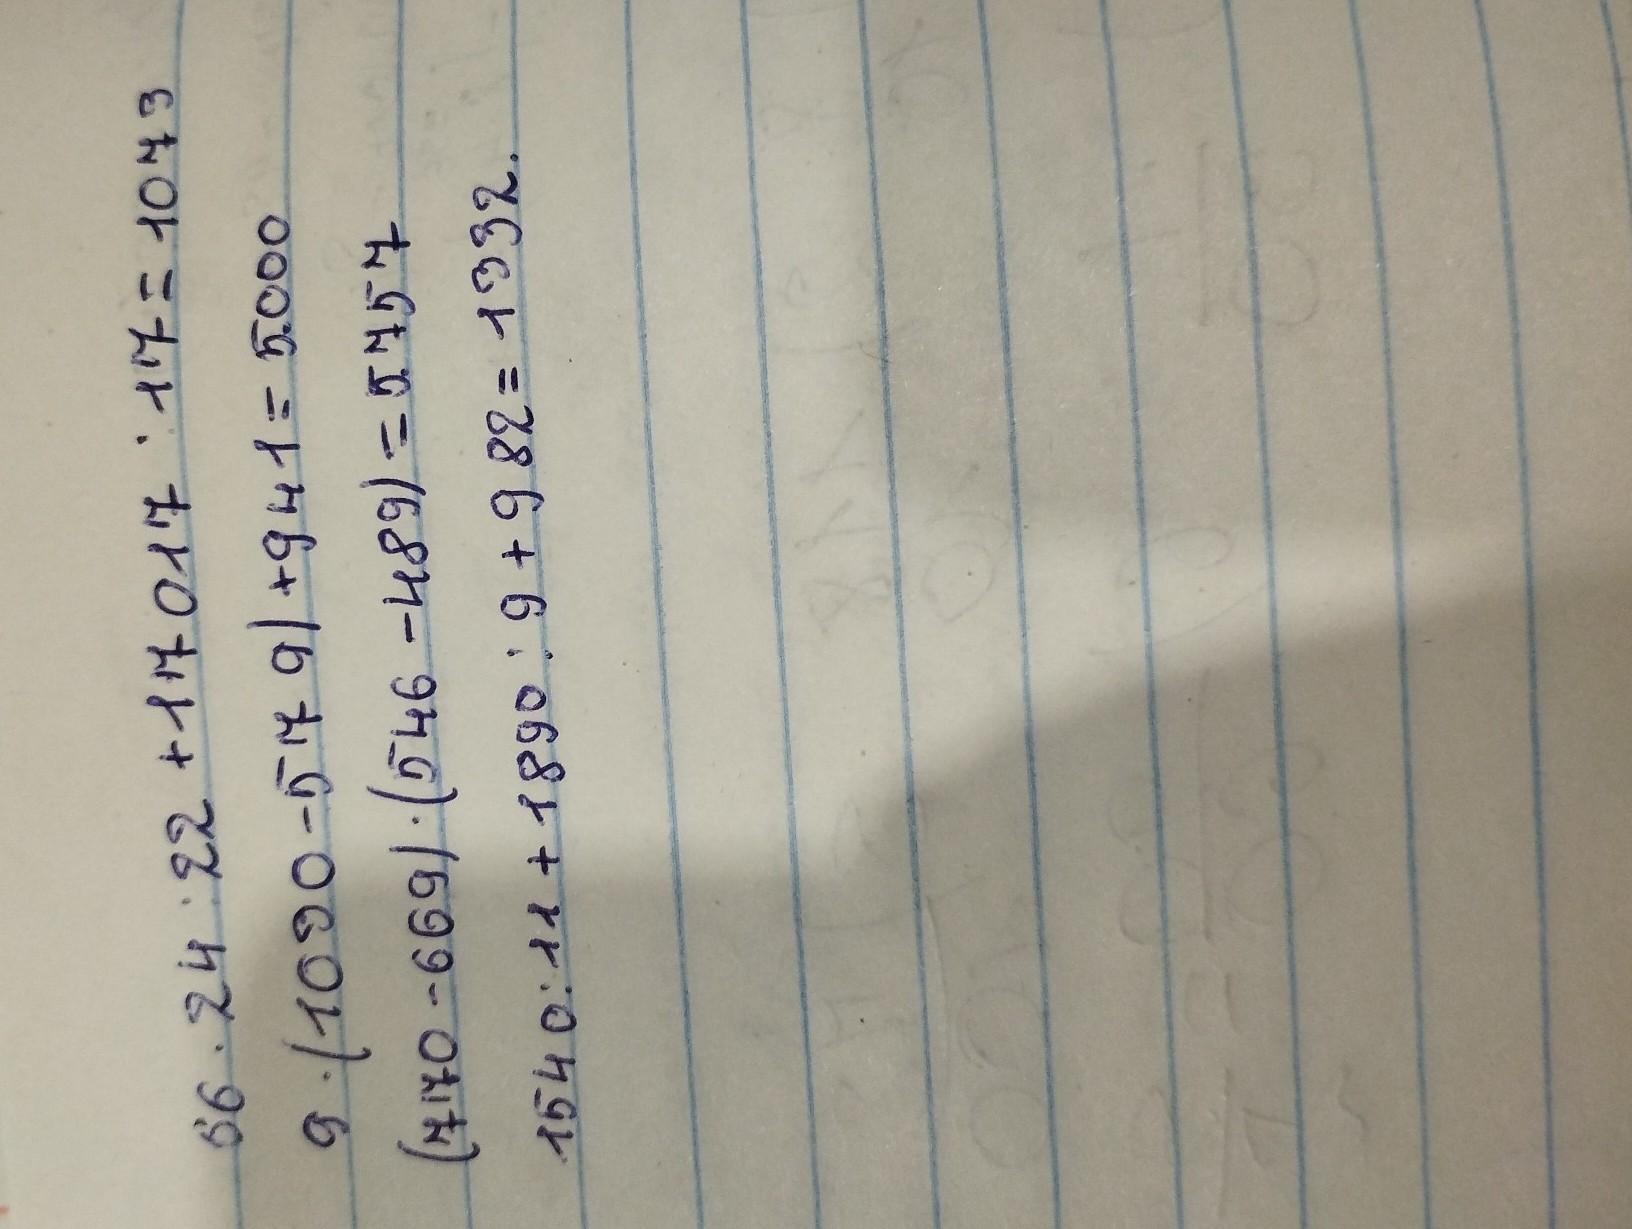 66 · 24 : 22 + 17017 : 17 = 1073
9 · (1030 - 579) + 941 = 5000
(770 - 669) · (546 - 489) = 5757
1540 : 11 + 1890 : 9 + 982 = 1332.